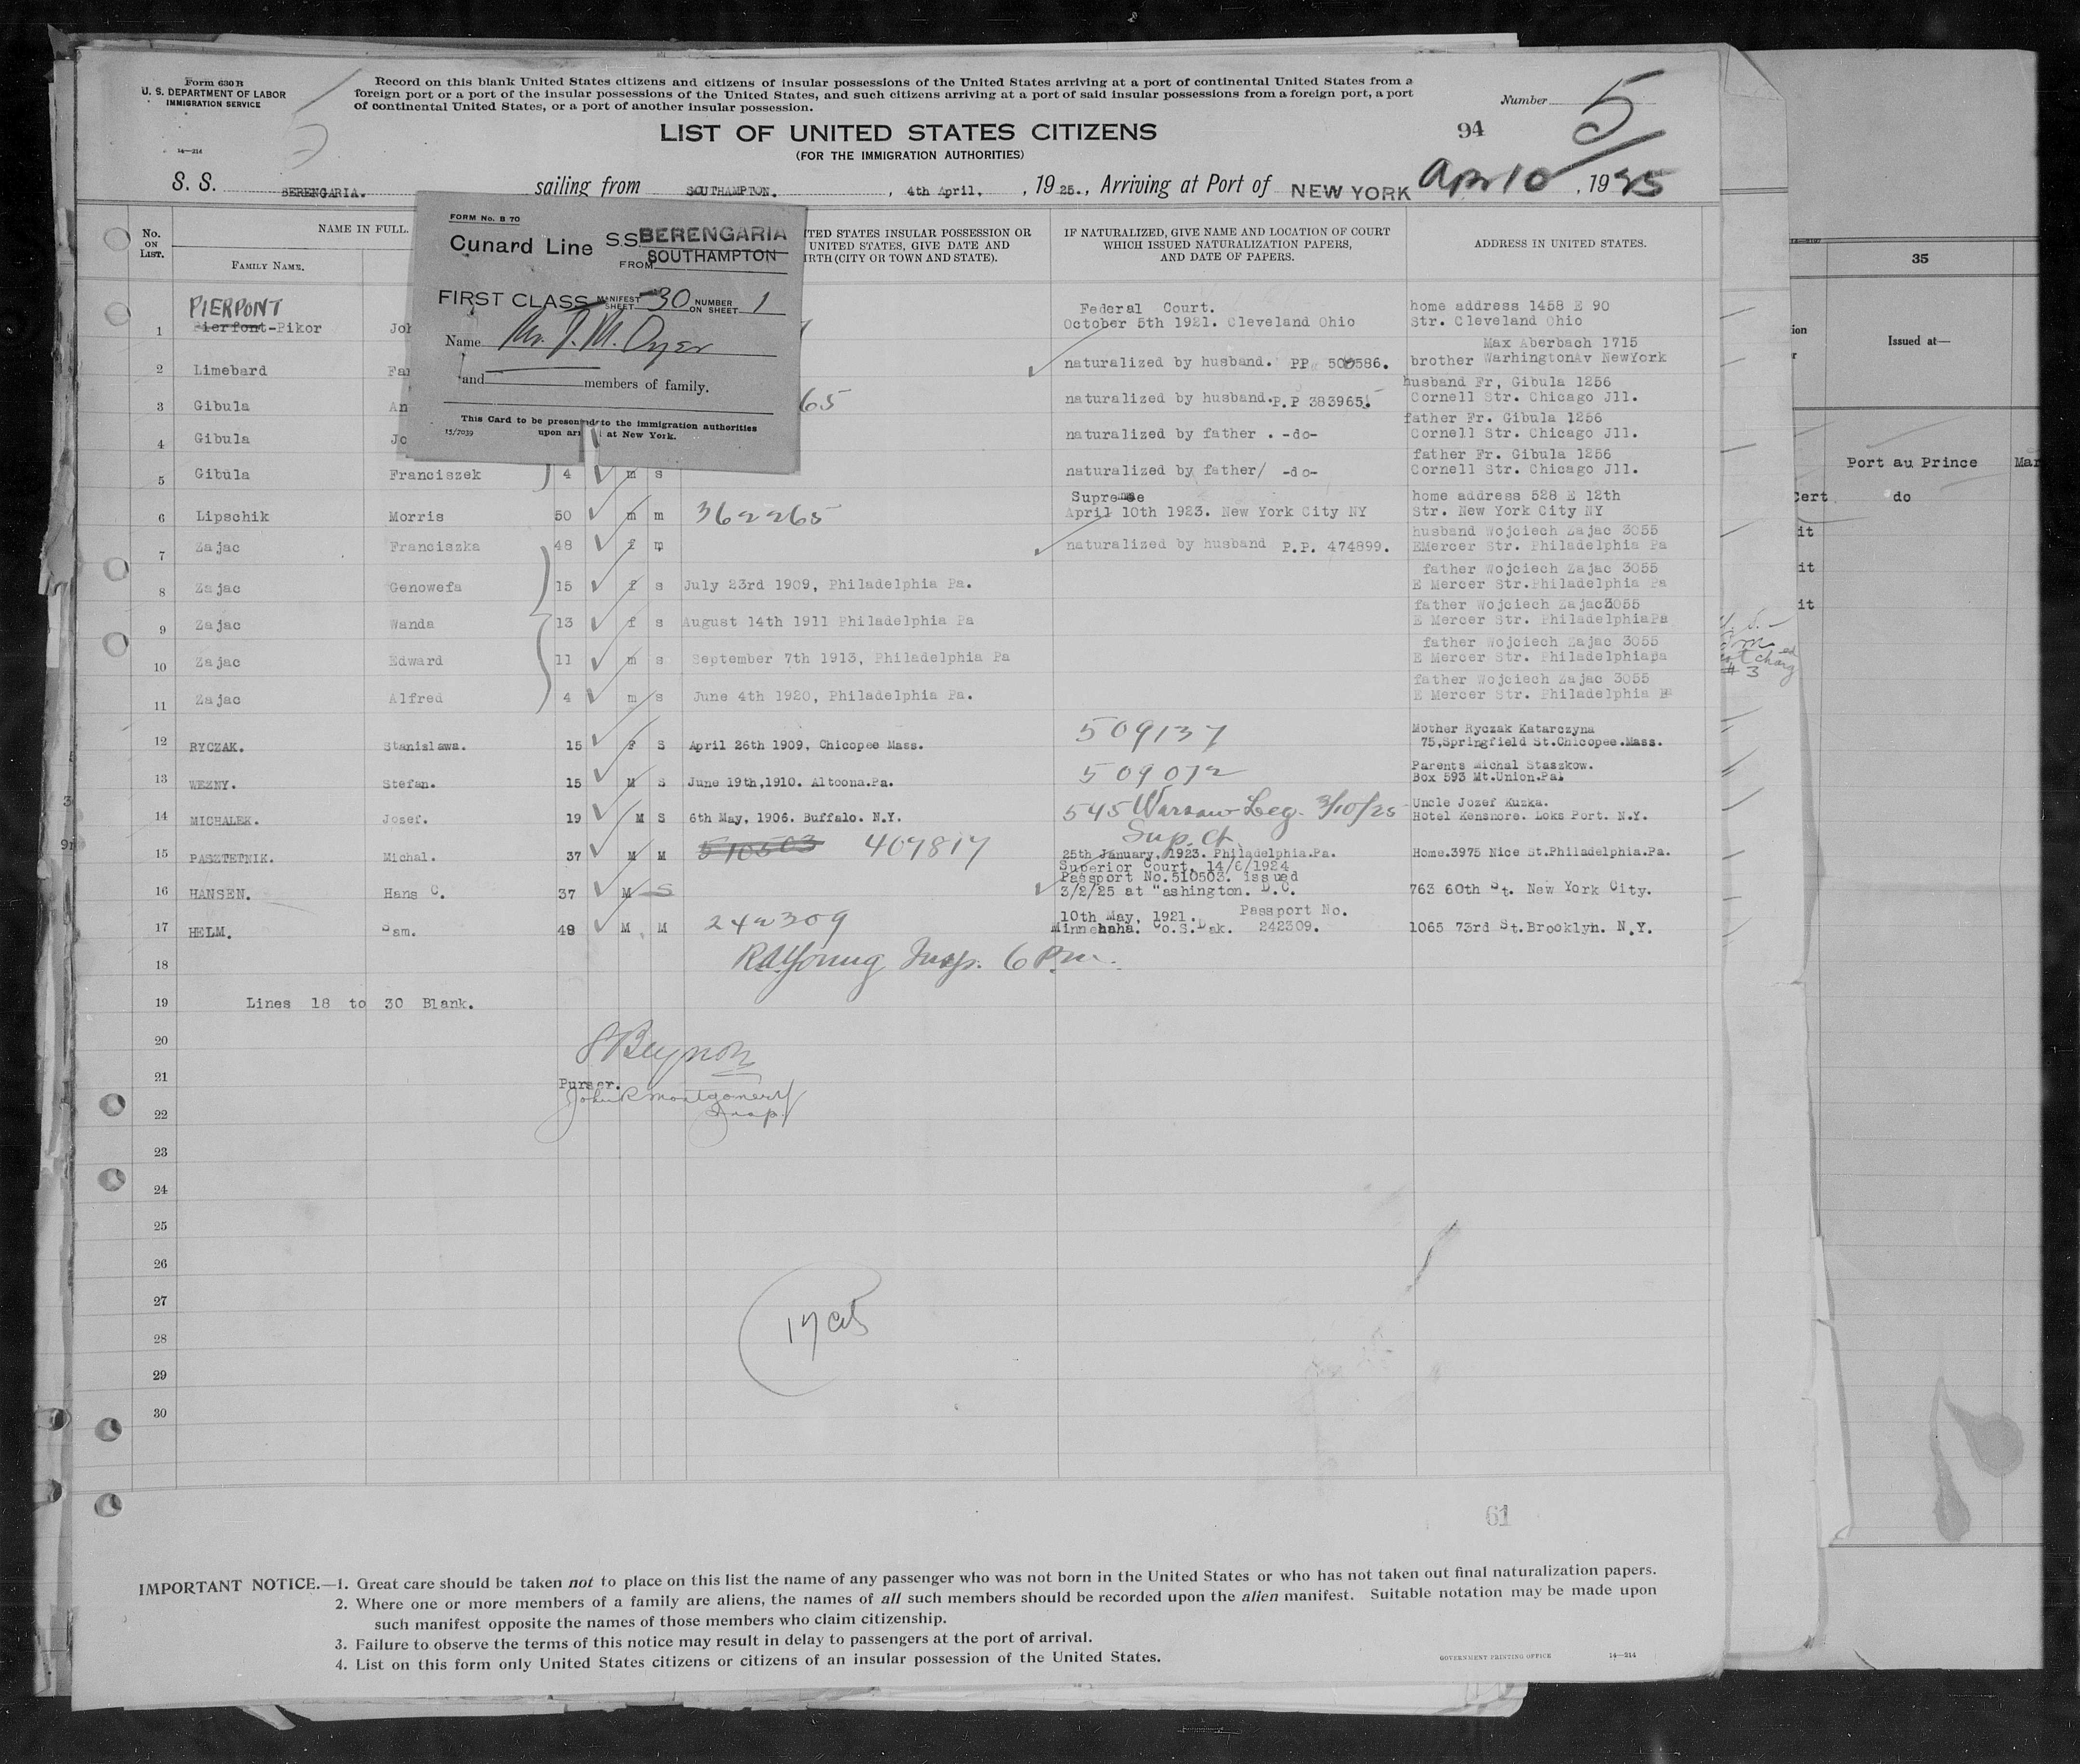 Form 630 B
U. S. DEPARTMENT OF LABOR
IMMIGRATION SERVICE
14—214
Record on this blank United States citizens and citizens of insular possessions of the United States arriving at a port of continental United States from a
foreign port or a port of the insular possessions of the United States, and such citizens arriving at a port of said insular possessions from a foreign port, a port
of continental United States, or a port of another insular possession.
Number 5
94
LIST OF UNITED STATES CITIZENS
(FOR THE IMMIGRATION AUTHORITIES)
S. S. BERENGARIA. sailing from SOUTHAMPTON. , 4th April. , 19 25., Arriving at Port of NEW YORK Apr 10 , 1925
No. ON LIST.
NAME IN FULL.
FAMILY NAME.
TED STATES INSULAR POSSESSION OR
UNITED STATES, GIVE DATE AND
RTH (CITY OR TOWN AND STATE).
IF NATURALIZED, GIVE NAME AND LOCATION OF COURT
WHICH ISSUED NATURALIZATION PAPERS,
AND DATE OF PAPERS.
ADDRESS IN UNITED STATES.
FORM No. B 70
Cunard Line S.S. BERENGARIA
FROM SOUTHAMPTON
FIRST CLASS MANIFEST SHEET 30 NUMBER ON SHEET 1
Name Mr. J. M. Dyer
and members of family.
This Card to be presented to the immigration authorities
upon arr at New York.
15/7039
PIERPONT
1 Pierfont-Pikor Joh Federal Court. October 5th 1921. Cleveland Ohio home address 1458 E 90 Str. Cleveland Ohio
2 Limebard Fa naturalized by husband. PP 500586. brother Max Aberbach 1715 WarhingtonAv NewYork
3 Gibula An 65 naturalized by husband. P.P 383965. husband Fr, Gibula 1256 Cornell Str. Chicago Jll.
4 Gibula Jo naturalized by father . -do- father Fr. Gibula 1256 Cornell Str. Chicago Jll.
5 Gibula Franciszek 4 m s naturalized by father/ -do- father Fr. Gibula 1256 Cornell Str. Chicago Jll.
6 Lipschik Morris 50 m m 362265 Supreme April 10th 1923. New York City NY home address 528 E 12th Str. New York City NY
7 Zajac Franciszka 48 f m naturalized by husband P.P. 474899. husband Wojciech Zajac 3055 EMercer Str. Philadelphia Pa
8 Zajac Genowefa 15 f s July 23rd 1909, Philadelphia Pa. father Wojciech Zajac 3055 E Mercer Str.Philadelphia Pa
9 Zajac Wanda 13 f s August 14th 1911 Philadelphia Pa father Wojciech Zajac3055 E Mercer Str. PhiladelphiaPa
10 Zajac Edward 11 m s September 7th 1913, Philadelphia Pa father Wojciech Zajac 3055 E Mercer Str. PhiladelphiaPa
11 Zajac Alfred 4 m s June 4th 1920, Philadelphia Pa. father Wojciech Zajac 3055 E Mercer Str. Philadelphia Pa
12 RYCZAK. Stanislawa. 15 F S April 26th 1909, Chicopee Mass. 509137 Mother Ryczak Katarczyna 75,Springfield St.Chicopee.Mass.
13 WEZNY. Stefan. 15 M S June 19th,1910. Altoona.Pa. 509072 Parents Michal Staszkow. Box 593 Mt.Union.Pa.
14 MICHALEK. Josef. 19 M S 6th May, 1906. Buffalo. N.Y. 545 Warsaw Leg. 3/10/25 Uncle Jozef Kuzka. Hotel Kensmore. Loks Port. N.Y.
15 PASZTETNIK. Michal. 37 M M 510503 407817 Sup. Ct. 25th January, 1923. Philadelphia.Pa. Home.3975 Nice St.Philadelphia.Pa.
16 HANSEN. Hans C. 37 M S Superior Court, 14/6/1924 Passport No.510503. issued 3/2/25 at "ashington. D.C. 763 60th St. New York City.
17 HELM. Sam. 48 M M 242309 10th May, 1921. Passport No. Minnehaha. Co.S.Dak. 242309. 1065 73rd St.Brooklyn. N.Y.
18 RA Young Insp. 6 P.m.
19 Lines 18 to 30 Blank.
20 Beynon
21 Purser.
John R Montgomery
22 Insp.
23
24
25
26
27
28
29
30
17
61
35
Issued at—
Port au Prince
Mar
Cert
do
it
it
it
IMPORTANT NOTICE.—1. Great care should be taken not to place on this list the name of any passenger who was not born in the United States or who has not taken out final naturalization papers.
2. Where one or more members of a family are aliens, the names of all such members should be recorded upon the alien manifest. Suitable notation may be made upon
such manifest opposite the names of those members who claim citizenship.
3. Failure to observe the terms of this notice may result in delay to passengers at the port of arrival.
4. List on this form only United States citizens or citizens of an insular possession of the United States.
GOVERNMENT PRINTING OFFICE 14—214